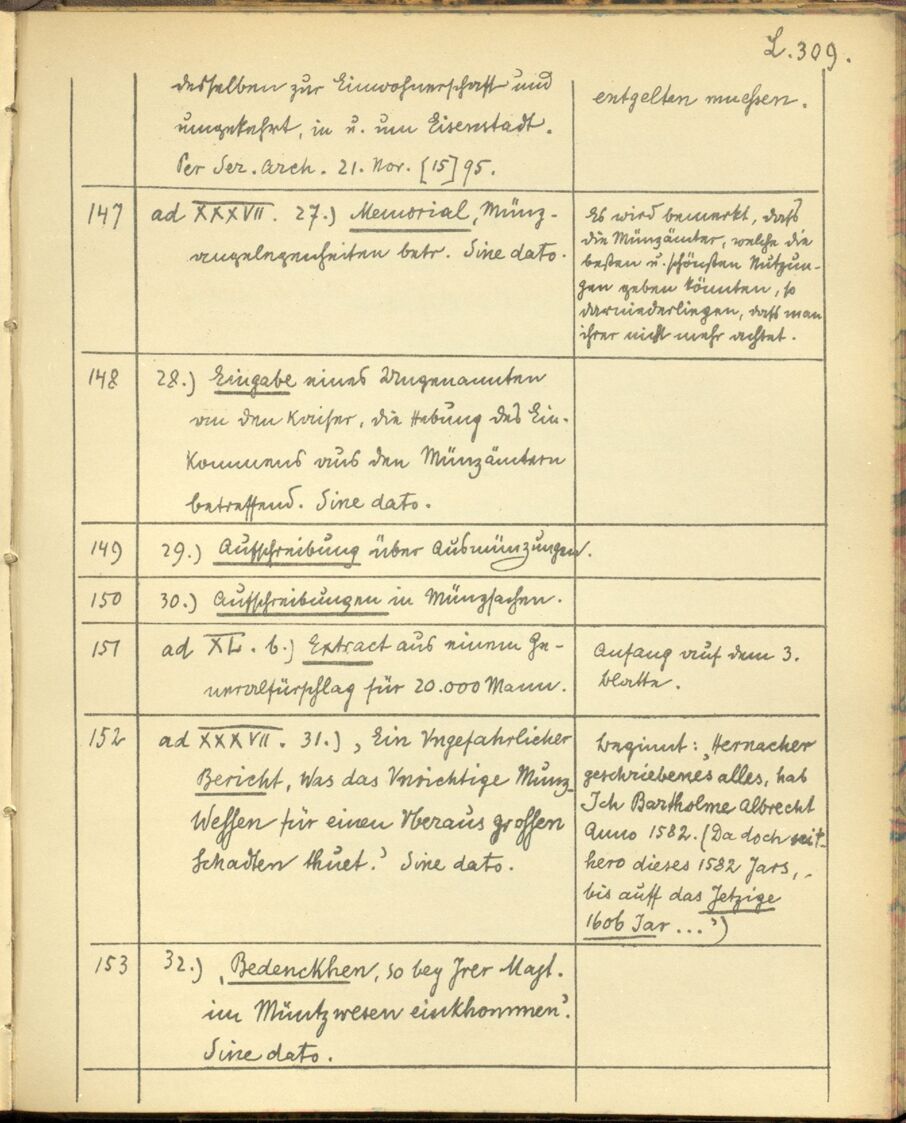 L. 309.
desselben zur Einwohnerschaft und
umgekehrt, in u. um Eisenstadt.
Per Ser. Arch. 21. Nov. [15]95.
entgelten muessen.
147
ad XXXVII. 27.) Memorial, Münz-
angelegenheiten betr. Sine dato.
Es wird bemerkt, dass
die Münzämter, welche die
besten u. schönsten Nutzun-
gen geben könnten, so
darniederliegen, dass man
ihrer nicht mehr achtet.
148
28.) Eingabe eines Ungenannten
an den Kaiser, die Hebung des Ein-
kommens aus den Münzämtern
betreffend. Sine dato.
149
29.) Aufschreibung über Ausmünzungen.
150
30.) Aufschreibungen in Münzsachen.
151
ad XL. b.) Extract aus einem Ge-
neralfürschlag für 20.000 Mann.
Anfang auf dem 3.
Blatte.
152
ad XXXVII. 31.) ‚Ein Vngefahrlicher
Bericht, Was das Vnrichtige Munz
Wessen für einen Vberaus grossen
Schadten thuet.‘ Sine dato.
Beginnt: ‚Hernacher
geschriebenes alles, hab
Ich Bartholme Albrecht
Anno 1582. (Da doch seit-
hero dieses 1582 Jars,
bis auff das Jetzige
1606 Jar ...‘)
153
32.) ‚Bedenckhen, so bey Jrer Mayt.
im Müntzwesen einkhommen‘.
Sine dato.